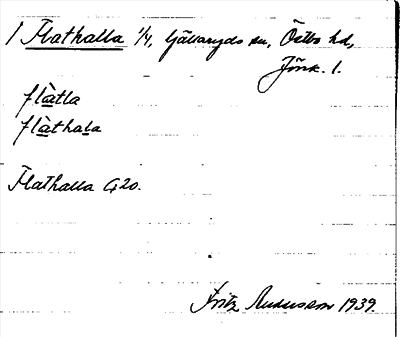 1 Flathalla 1/4, Gällaryds sn, Östbo hd,
Jönk. l.
flàtla
flàthala
Flathalla G20.
Fritz Andersson 1939.